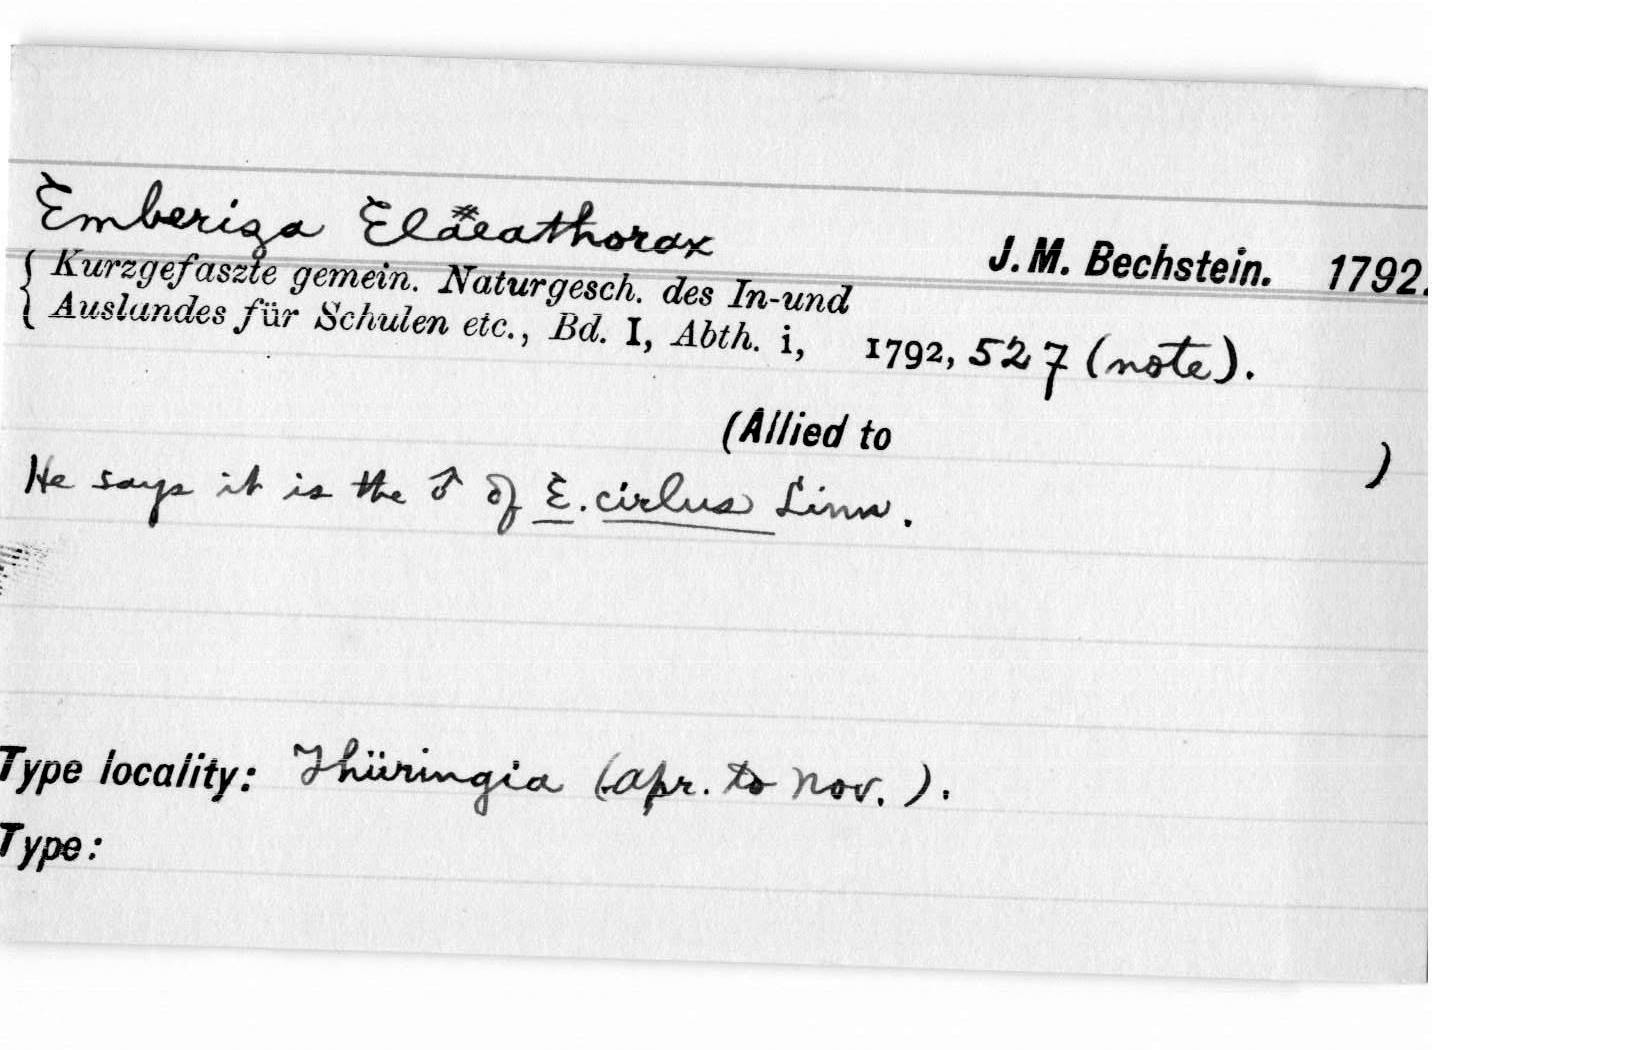 Emberiza Eläeathorax
J. M. Bechstein. 1792.
Kurzgefaszte gemein. Naturgesch. des In-und
Auslandes für Schulen etc., Bd. I, Abth. i, 1792, 527 (note).
(Allied to )
He says it is the ♂ of E. cirlus Linn.
Type locality: Thüringia (Apr. to Nov.).
Type: